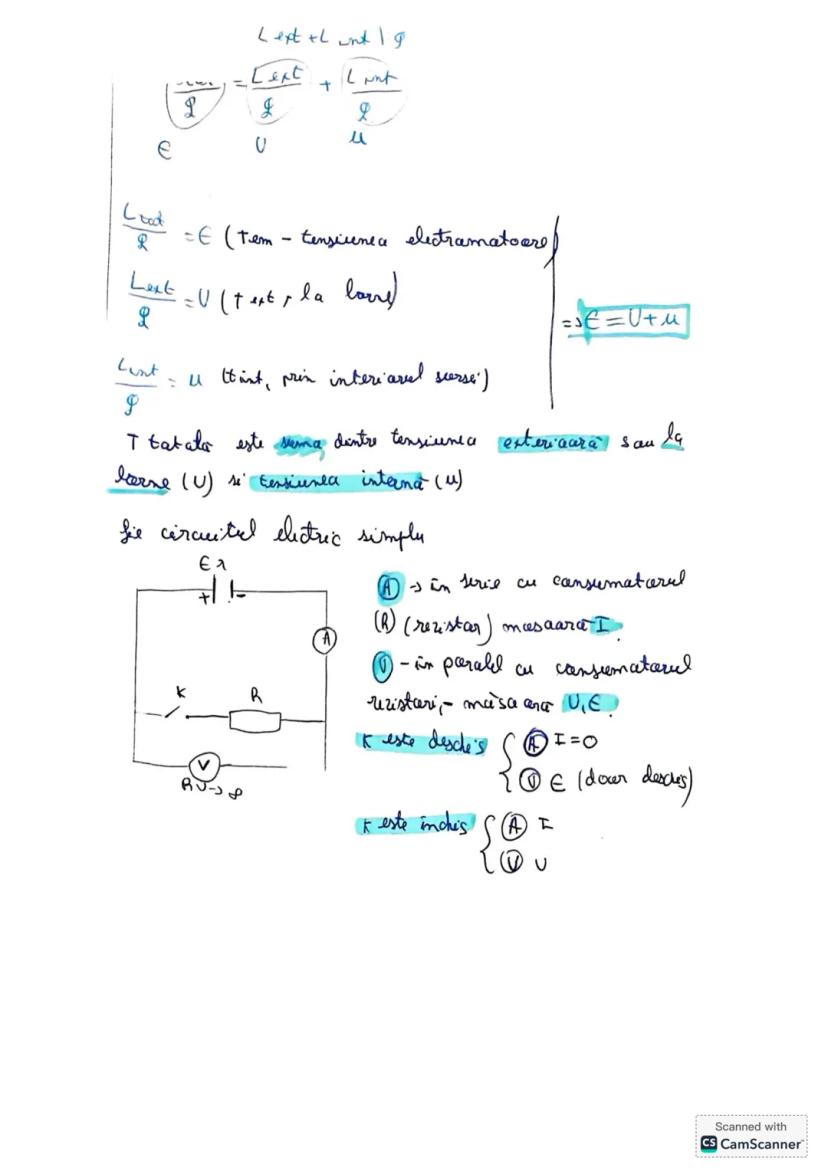 L ext + L int | q
q = L ext / q + L int / q
E U u
L tot / q = E (Tem - tensiunea electromotoare)
L ext / q = U (T ext, la borne)
=> E = U + u
L int / q = u (t int, prin interiorul sursei)
T totala este suma dintre tensiunea exterioară sau la
borne (U) si tensiunea internă (u)
fie circuitul electric simplu
E r
+ -
A
K R
V
RV → ∞
A → în serie cu consumatorul
(R) (rezistor) masoara I.
V - in paralel cu consumatorul
rezistori, - măsoara U, E.
K este deschis { A I = 0
V E (doar deschis)
K este inchis { A I
V U
Scanned with
CS CamScanner